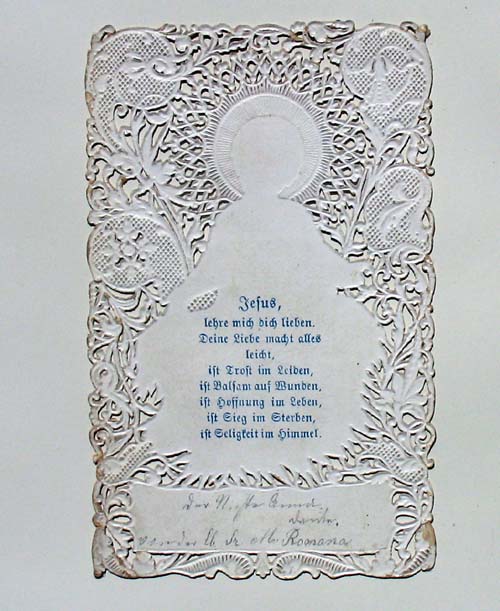 Jesus,
lehre mich dich lieben.
Deine Liebe macht alles
leicht,
ist Trost im Leiden,
ist Balsam auf Wunden,
ist Hoffnung im Leben,
ist Sieg im Sterben,
ist Seligkeit im Himmel.
von der
Romana